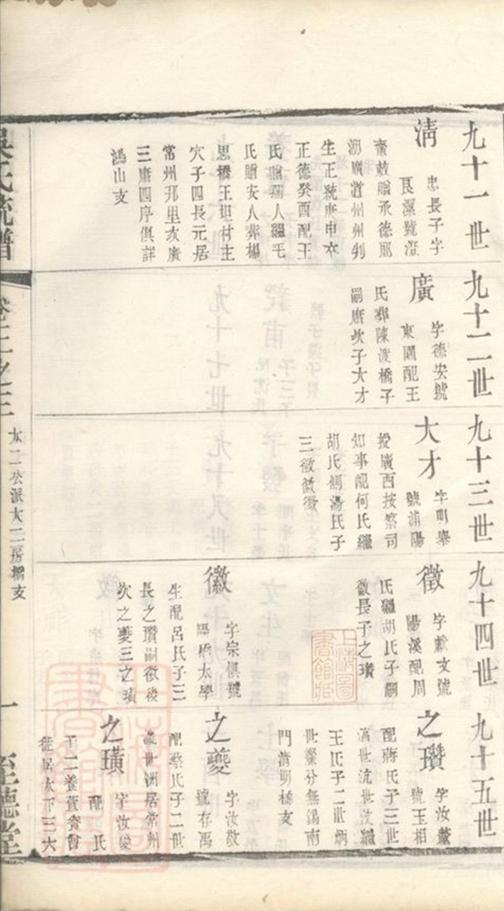 九十一世
清
忠長子字
艮溪號澄
齋敕贈承德郎
湖廣道州州判
生正統庚申卒
正德癸酉配王
氏贈孺人繼毛
氏贈安人葬楊
思橋王坦村主
穴子四長元居
常州邢里次廣
三庠四序俱詳
馮山支
九十二世
廣
字德安號
東園配王
氏葬陳渡橋子
嗣庠次子大才
九十三世
大才
字明舉
號浦陽
授廣西按察司
知事配何氏繼
胡氏側湯氏子
三徵徽
九十四世
徵
字獻文號
陽溪配周
氏繼胡氏子嗣
徽長子之瓚
徽
字宗俱號
陽橋太學
生配呂氏子三
長之瓚嗣徵後
次之夔三之璜
九十五世
之瓚
字汝黼
號玉相
配蔣氏子三世
王氏子二世炳
世粲分無錫南
門清明橋支
之夔
字汝敬
號存禹
配蔡氏子二世
世洲居常州
之璜
字汝俊
配 氏
子二
吳氏統譜
卷三之三
大二公派大二房橋支
一
至德堂
上海圖書館藏